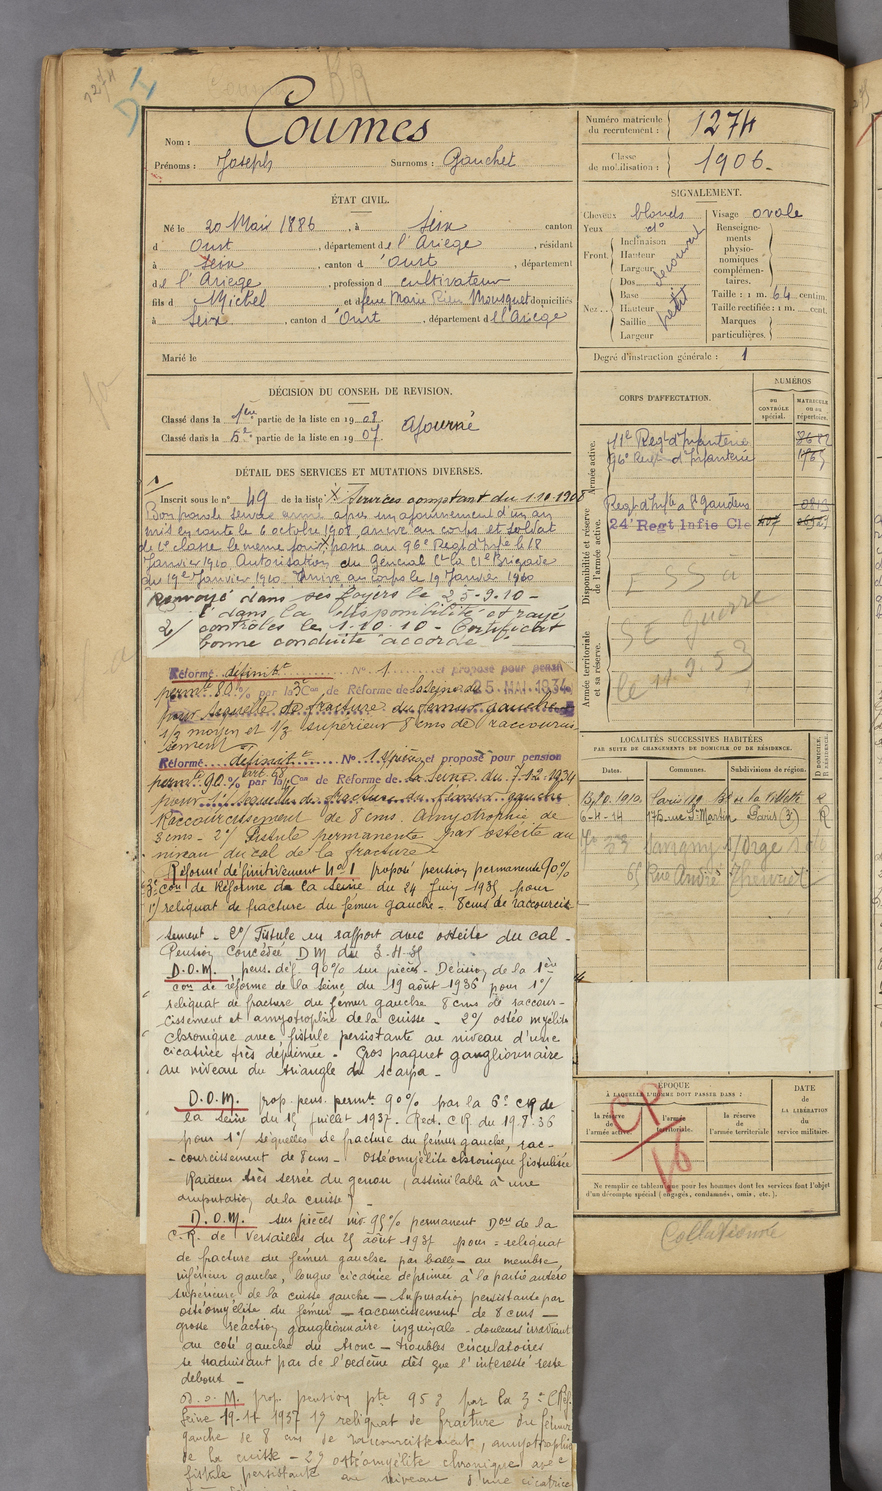 Nom : Coumes
Prénoms : Joseph Surnoms : Gauchet
ÉTAT CIVIL.
Né le 20 Mai 1886, à Seix canton
d Oust, département de l'Ariège, résidant
à Seix, canton d Oust, département
de l'Ariège, profession d cultivateur
fils d Michel et d feue Marie Rieu Mousquet domiciliés
à Seix, canton d Oust, département de l'Ariège
Marié le
DÉCISION DU CONSEIL DE REVISION.
Classé dans la 1ère partie de la liste en 1908.
Classé dans la 5e partie de la liste en 1907. Ajourné
DÉTAIL DES SERVICES ET MUTATIONS DIVERSES.
Inscrit sous le n° 49 de la liste X Services comptant du 1.10.1908
Bon pour le service armé après un ajournement d'un an
mis en route le 6 octobre 1908, arrivé au corps et soldat
de 2e classe le même jour X passé au 96e Regt d'Infie le 18
Janvier 1910. Autorisation du Général Ct la 61e Brigade
du 19 Janvier 1910. Arrivé au corps le 19 Janvier 1910
Renvoyé dans ses foyers le 25-9.10-
2/ dans la disponibilité et rayé
contrôles le 1.10.10- Certificat
bonne conduite accordé
Réformé définitt N° 1 et proposé pour pension
permte 80% par la 3e Con de Réforme de la Seine du 25 MAI 1934
pour séquelle de fracture du fémur gauche
1/3 moyen et 1/3 supérieur 8 cms de raccourcis-
sement
Réformé définitt N° 1 et proposé pour pension
permte 90% par la Con de Réforme de la Seine du 7.12.1934
pour 1° séquelle de fracture du fémur gauche
Raccourcissement de 8 cms. Amyotrophie de
3 cms - 2° Fistule permanente par ostéite au
niveau du cal de la fracture
Réformé définitivement N° 1 proposé pension permanente 90%
3e con de Réforme de la Seine du 24 Juin 1935 pour
1°/ reliquat de fracture du fémur gauche - 8 cms de raccourcis-
sement - 2°/ Fistule en rapport avec ostéite du cal -
Pension Concédée DM du 3-H-35
D.O.M. pens. déf. 90% sur pièces - Décision de la 1ère
con de réforme de la Seine du 19 août 1936 pour 1°/
reliquat de fracture du fémur gauche 8 cms de raccour-
cissement et amyotrophie de la cuisse - 2°/ ostéo myélite
chronique avec fistule persistante au niveau d'une
cicatrice très déprimée - Gros paquet ganglionnaire
au niveau du triangle du scarpa -
D.O.M. prop. pens. permte 90% par la 6e CR de
la Seine du 15 juillet 1937. Red. CR du 19.8.36
pour 1°/ séquelles de fracture du fémur gauche, rac-
-courcissement de 8 cms - ostéomyélite chronique fistulisée
Raideur très serrée du genou, (assimilable à une
amputation de la cuisse)
D.O.M. sur pièces inv 95% permanent Don de la
C.R. de Versailles du 25 août 1937 pour : reliquat
de fracture du fémur gauche par balle - au membre
inférieur gauche, longue cicatrice déprimée à la partie antéro
supérieure de la cuisse gauche - suppuration persistante par
ostéomyélite du fémur - raccourcissement de 8 cms -
grosse réaction ganglionnaire inguinale - douleurs irradiant
au coté gauche du tronc - troubles circulatoires
se traduisant par de l'oedème dès que l'intéressé reste
debout -
D.O.M. prop. pension pte 95% par la 3e C.Réf.
Seine 19-11 1937 1° reliquat de fracture du fémur
gauche de 8 cms de raccourcissement, amyotrophie
de la cuisse - 2° ostéomyélite chronique avec
fistule persistante au niveau d'une cicatrice
Numéro matricule du recrutement : 1274
Classe de mobilisation : 1906.
SIGNALEMENT.
Cheveux blonds
Yeux d°
Front. Inclinaison Hauteur Largeur découvert
Nez.. Dos Base Hauteur Saillie Largeur petit
Visage ovale
Renseignements physionomiques complémentaires.
Taille : 1 m. 64 centim.
Taille rectifiée : 1 m. cent.
Marques particulières.
Degré d'instruction générale : 1
CORPS D'AFFECTATION.
NUMÉROS
DU CONTRÔLE spécial.
MATRICULE OU AU répertoire.
Armée active.
11e Regt d'Infanterie
96e Regt d'Infanterie
Disponibilité et réserve de l'armée active.
Regt d'Infie St Gaudens
24e Regt Infie Cle
Armée territoriale et sa réserve.
SE Guerre
le 11.9.53
LOCALITÉS SUCCESSIVES HABITÉES
PAR SUITE DE CHANGEMENTS DE DOMICILE OU DE RÉSIDENCE.
Dates. Communes. Subdivisions de région. D DOMICILE. R RÉSIDENCE.
1910. Paris 119 Bd de la Villette R
6-4-14 175 rue St Martin Paris (3e) R
Savigny s/Orge
65 Rue André
ÉPOQUE
À LAQUELLE L'HOMME DOIT PASSER DANS :
la réserve de l'armée active.
l'armée territoriale.
la réserve de l'armée territoriale
DATE de LA LIBÉRATION du service militaire.
CP
16
Ne remplir ce tableau que pour les hommes dont les services font l'objet
d'un décompte spécial (engagés, condamnés, omis, etc.).
Collationné